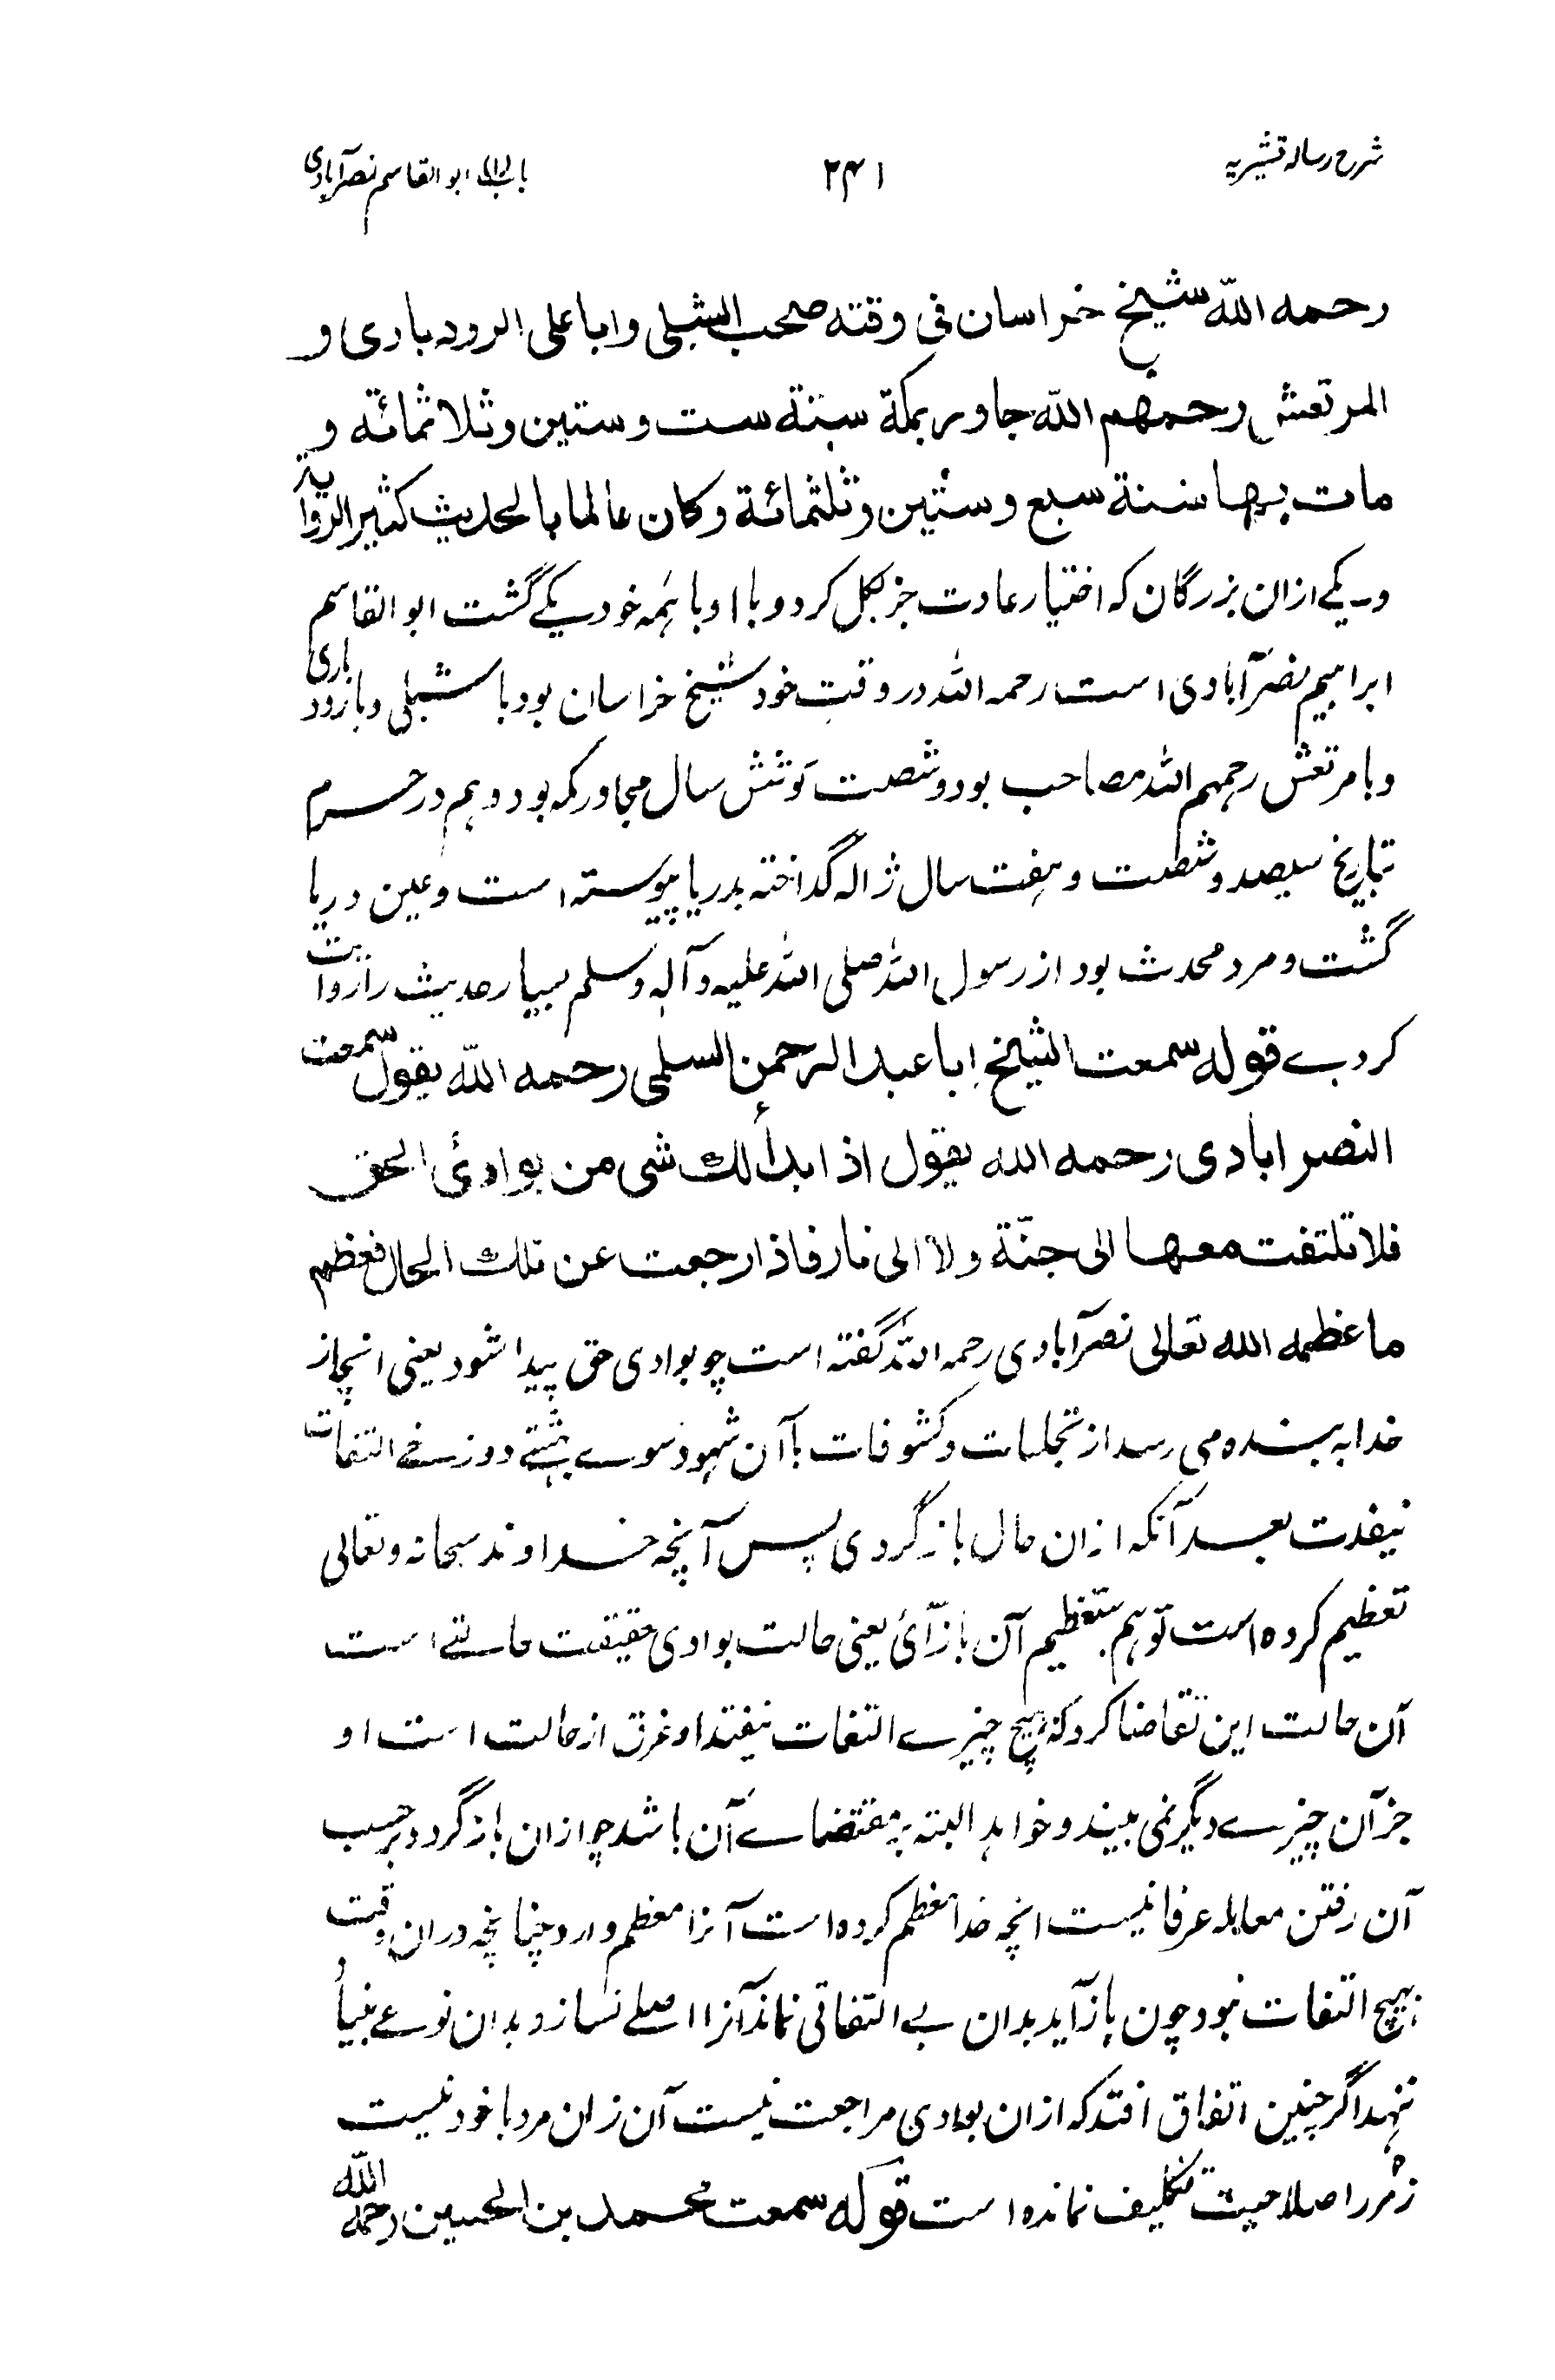 شرح رساله قشیریه
۲۴۱
باب اول ابو القاسم نصرآبادی
رحمه الله شیخ خراسان فی وقته صحب الشبلی وابا علی الرودباری و
المرتعش رحمهم الله جاور بمکة سنة ست وستین وثلاثمائة و
مات بها سنة سبع وستین وثلثمائة وکان عالما بالحدیث کثیر الروایة
و یکے ازان بزرگان که اختیار عادت جز بکل کرد و با او با همه خود یکے گشت ابو القاسم
ابراهیم نصرآبادی است رحمه الله در وقت خود شیخ خراسان بود با شبلی و با رودباری
و با مرتعش رحمهم الله مصاحب بود و شصت و شش سال مجاور مکه بود و هم در حرم
بتاریخ سیصد و شصت و هفت سال ژاله گداخته بدریا پیوسته است و عین دریا
گشت و مرد محدث بود از رسول الله صلی الله علیه وآله وسلم بسیار حدیث را روایت
کردے قوله سمعت الشیخ ابا عبد الرحمن السلمی رحمه الله یقول سمعت
النصرابادی رحمه الله یقول اذا بدألك شی من بوادئ الحق
فلا تلتفت معها الی جنّة ولا الی نار فاذا رجعت عن تلك الحال فعظم
ما عظمه الله تعالی نصرآبادی رحمه الله گفته است چو بوادی حق پیدا شود یعنی انچه از
خدا به بنده می رسد از تجلیات و کشوفات باآن شهود سوے بهشتے و دوزخے التفات
نیفتد بعد آنکه ازان حال باز گردی پس آنچه خداوند سبحانه وتعالی
تعظیم کرده است تو هم بتعظیم آن بازآئ یعنی حالت بوادی حقیقت حالتے است
آن حالت این تقاضا کرد که بهیچ چیزے التفات نیفتد او غرق از حالت است او
جز آن چیزے دیگر نمی بیند و خواهد البته به مقتضاے آن باشد چو ازان باز گردد برحسب
آن رفتن معامله عرفا نیست انچه خدا معظم کرده است آنرا معظم دارد چنانچه دران وقت
بهیچ التفات نبود چون بازآید بدان بے التفاتی نماند آنرا اصلے نسازد و بدان نوعے بنیاد
ننهد اگر چنین اتفاق افتد که ازان بوادی مراجعت نیست آن زمان مرد با خود نیست
را صلاحیت تکلیف نمانده است قوله سمعت محمد بن الحسین رحمه الله